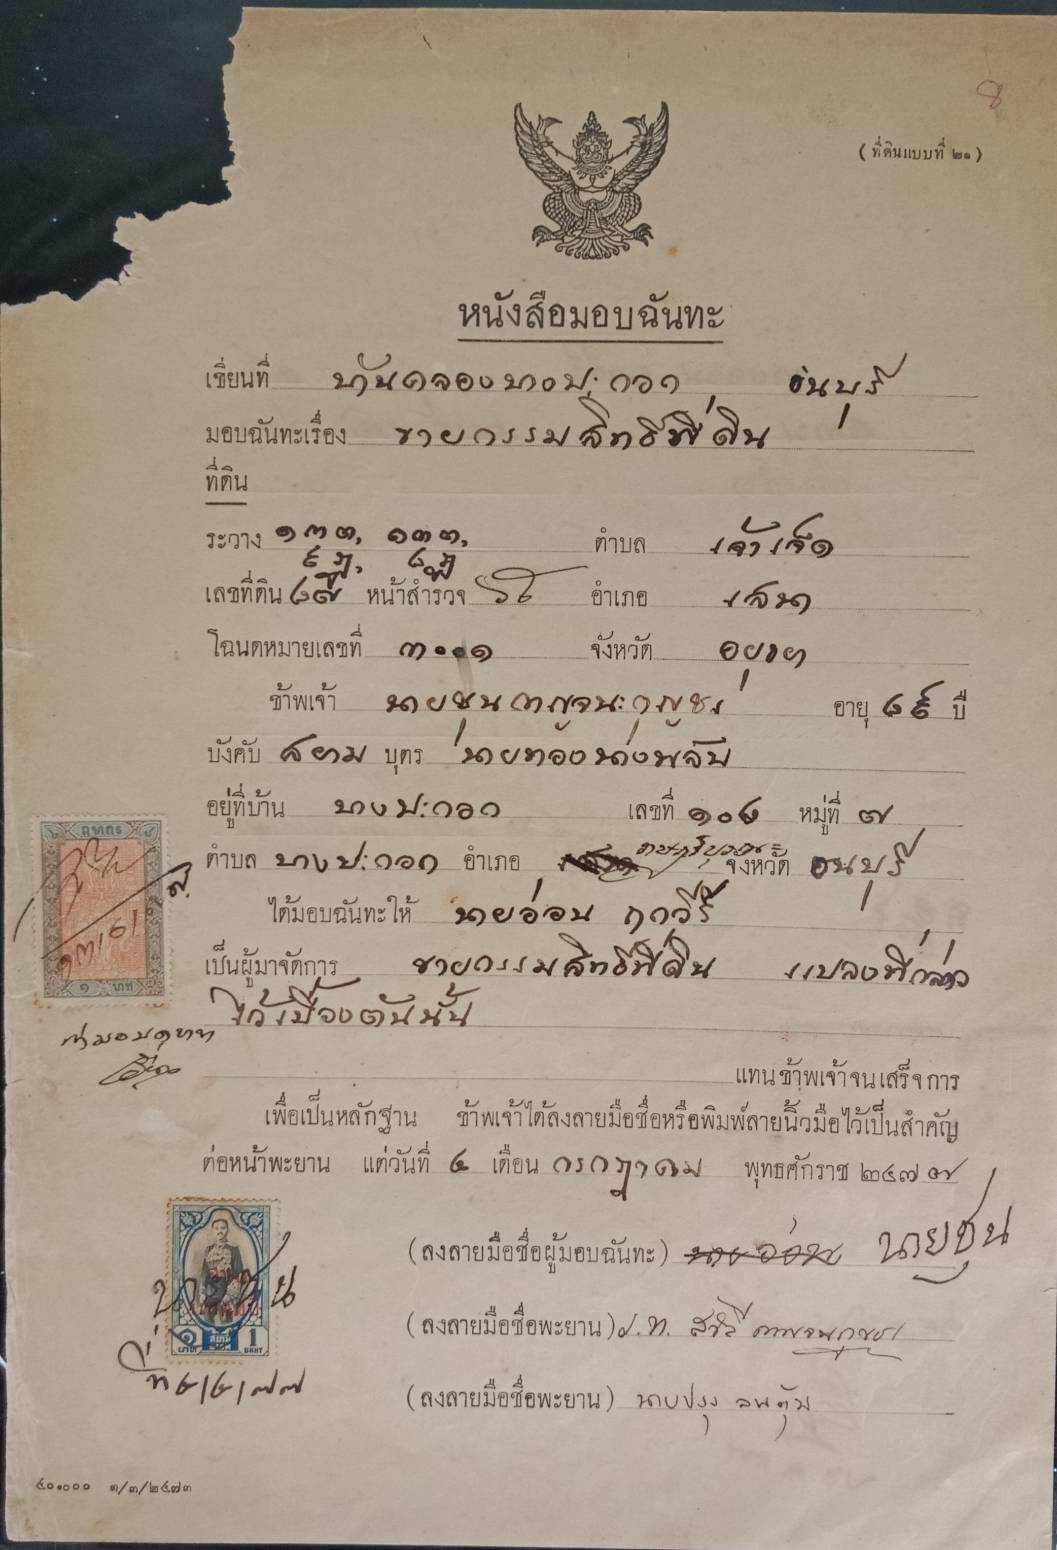 8
(ที่ดินแบบที่ ๒๑)
หนังสือมอบฉันทะ
เขียนที่ บ้านคลองบางปะกอก ธนบุรี
มอบฉันทะเรื่อง ขายกรรมสิทธิ์ที่ดิน
ที่ดิน
ระวาง ๑๓ต, ๑๓ต, ตำบล เจ้าเจ็ด
๙ฎ, ๘ฎ
เลขที่ดิน ๘๗ หน้าสำรวจ อำเภอ เสนา
โฉนดหมายเลขที่ ๓๐๐๑ จังหวัด อยุธยา
ข้าพเจ้า นายชุน กาญจนะกุญชร อายุ ๘๙ ปี
บังคับ สยาม บุตร นายทองนางพลับ
อยู่ที่บ้าน บางปะกอก เลขที่ ๑๐๘ หมู่ที่ ๗
ตำบล บางปะกอก อำเภอ ราษฎร์บูรณะ จังหวัด ธนบุรี
ได้มอบฉันทะให้ นายอ่อน
เป็นผู้มาจัดการ ขายกรรมสิทธิ์ที่ดิน แปลงที่กล่าว
ไว้เบื้องต้นนั้น
แทนข้าพเจ้าจนเสร็จการ
เพื่อเป็นหลักฐาน ข้าพเจ้าได้ลงลายมือชื่อหรือพิมพ์ลายนิ้วมือไว้เป็นสำคัญ
ต่อหน้าพะยาน แต่วันที่ ๔ เดือน กรกฎาคม พุทธศักราช ๒๔๗๗
(ลงลายมือชื่อผู้มอบฉันทะ) นายอ่อน นายชุน
(ลงลายมือชื่อพะยาน) ร.ท. กาญจนกุญชร
(ลงลายมือชื่อพะยาน) นาย
อากร
๑ บาท
นายชุน
๑ บาท 1 BAHT
ที่ ๔/๔/๗๗
๔๐๐๐๐ ๓/๓/๒๔๗๓